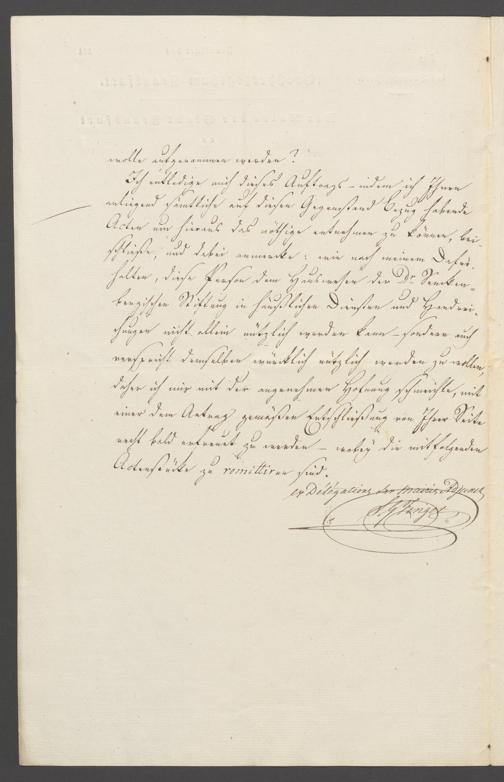 wolle aufgenommen werden?
Ich entledige mich dieses Auftrags – indem ich Ihnen
anliegend sämtliche auf diesen Gegenstand Bezug habende
Acten um hieraus das nöthige entnehmen zu können, bei-
schließe, und dabei anmerke: wie nach meinem Dafür-
halten, diese Person dem Hauswesen der Dr. Sencken-
bergischen Stiftung in häußlichen Diensten und Handrei-
chungen nicht allein nützlich werden kann – sondern auch
verspricht demselben würcklich nützlich werden zu wollen,
daher ich mir mit der angenehmen Hofnung schmeichle, mit
einer dem Antrag gemäßen Entschließung von Ihrer Seite
recht bald erfreuet zu werden – wobey die mitfolgenden
Actenstücke zu remittiren sind.
ex Delegatione